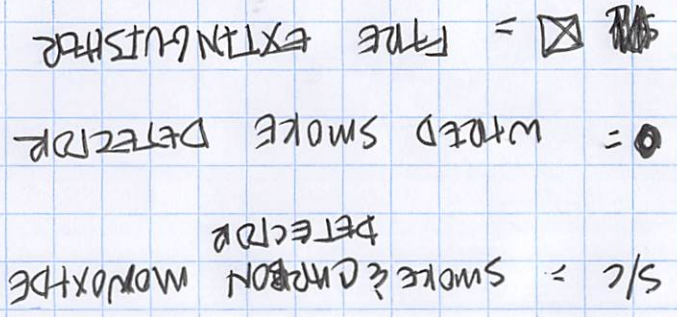 S/C = SMOKE & CARBON MONOXIDE
DETECTOR
= WIRED SMOKE DETECTOR
= FIRE EXTINGUISHER